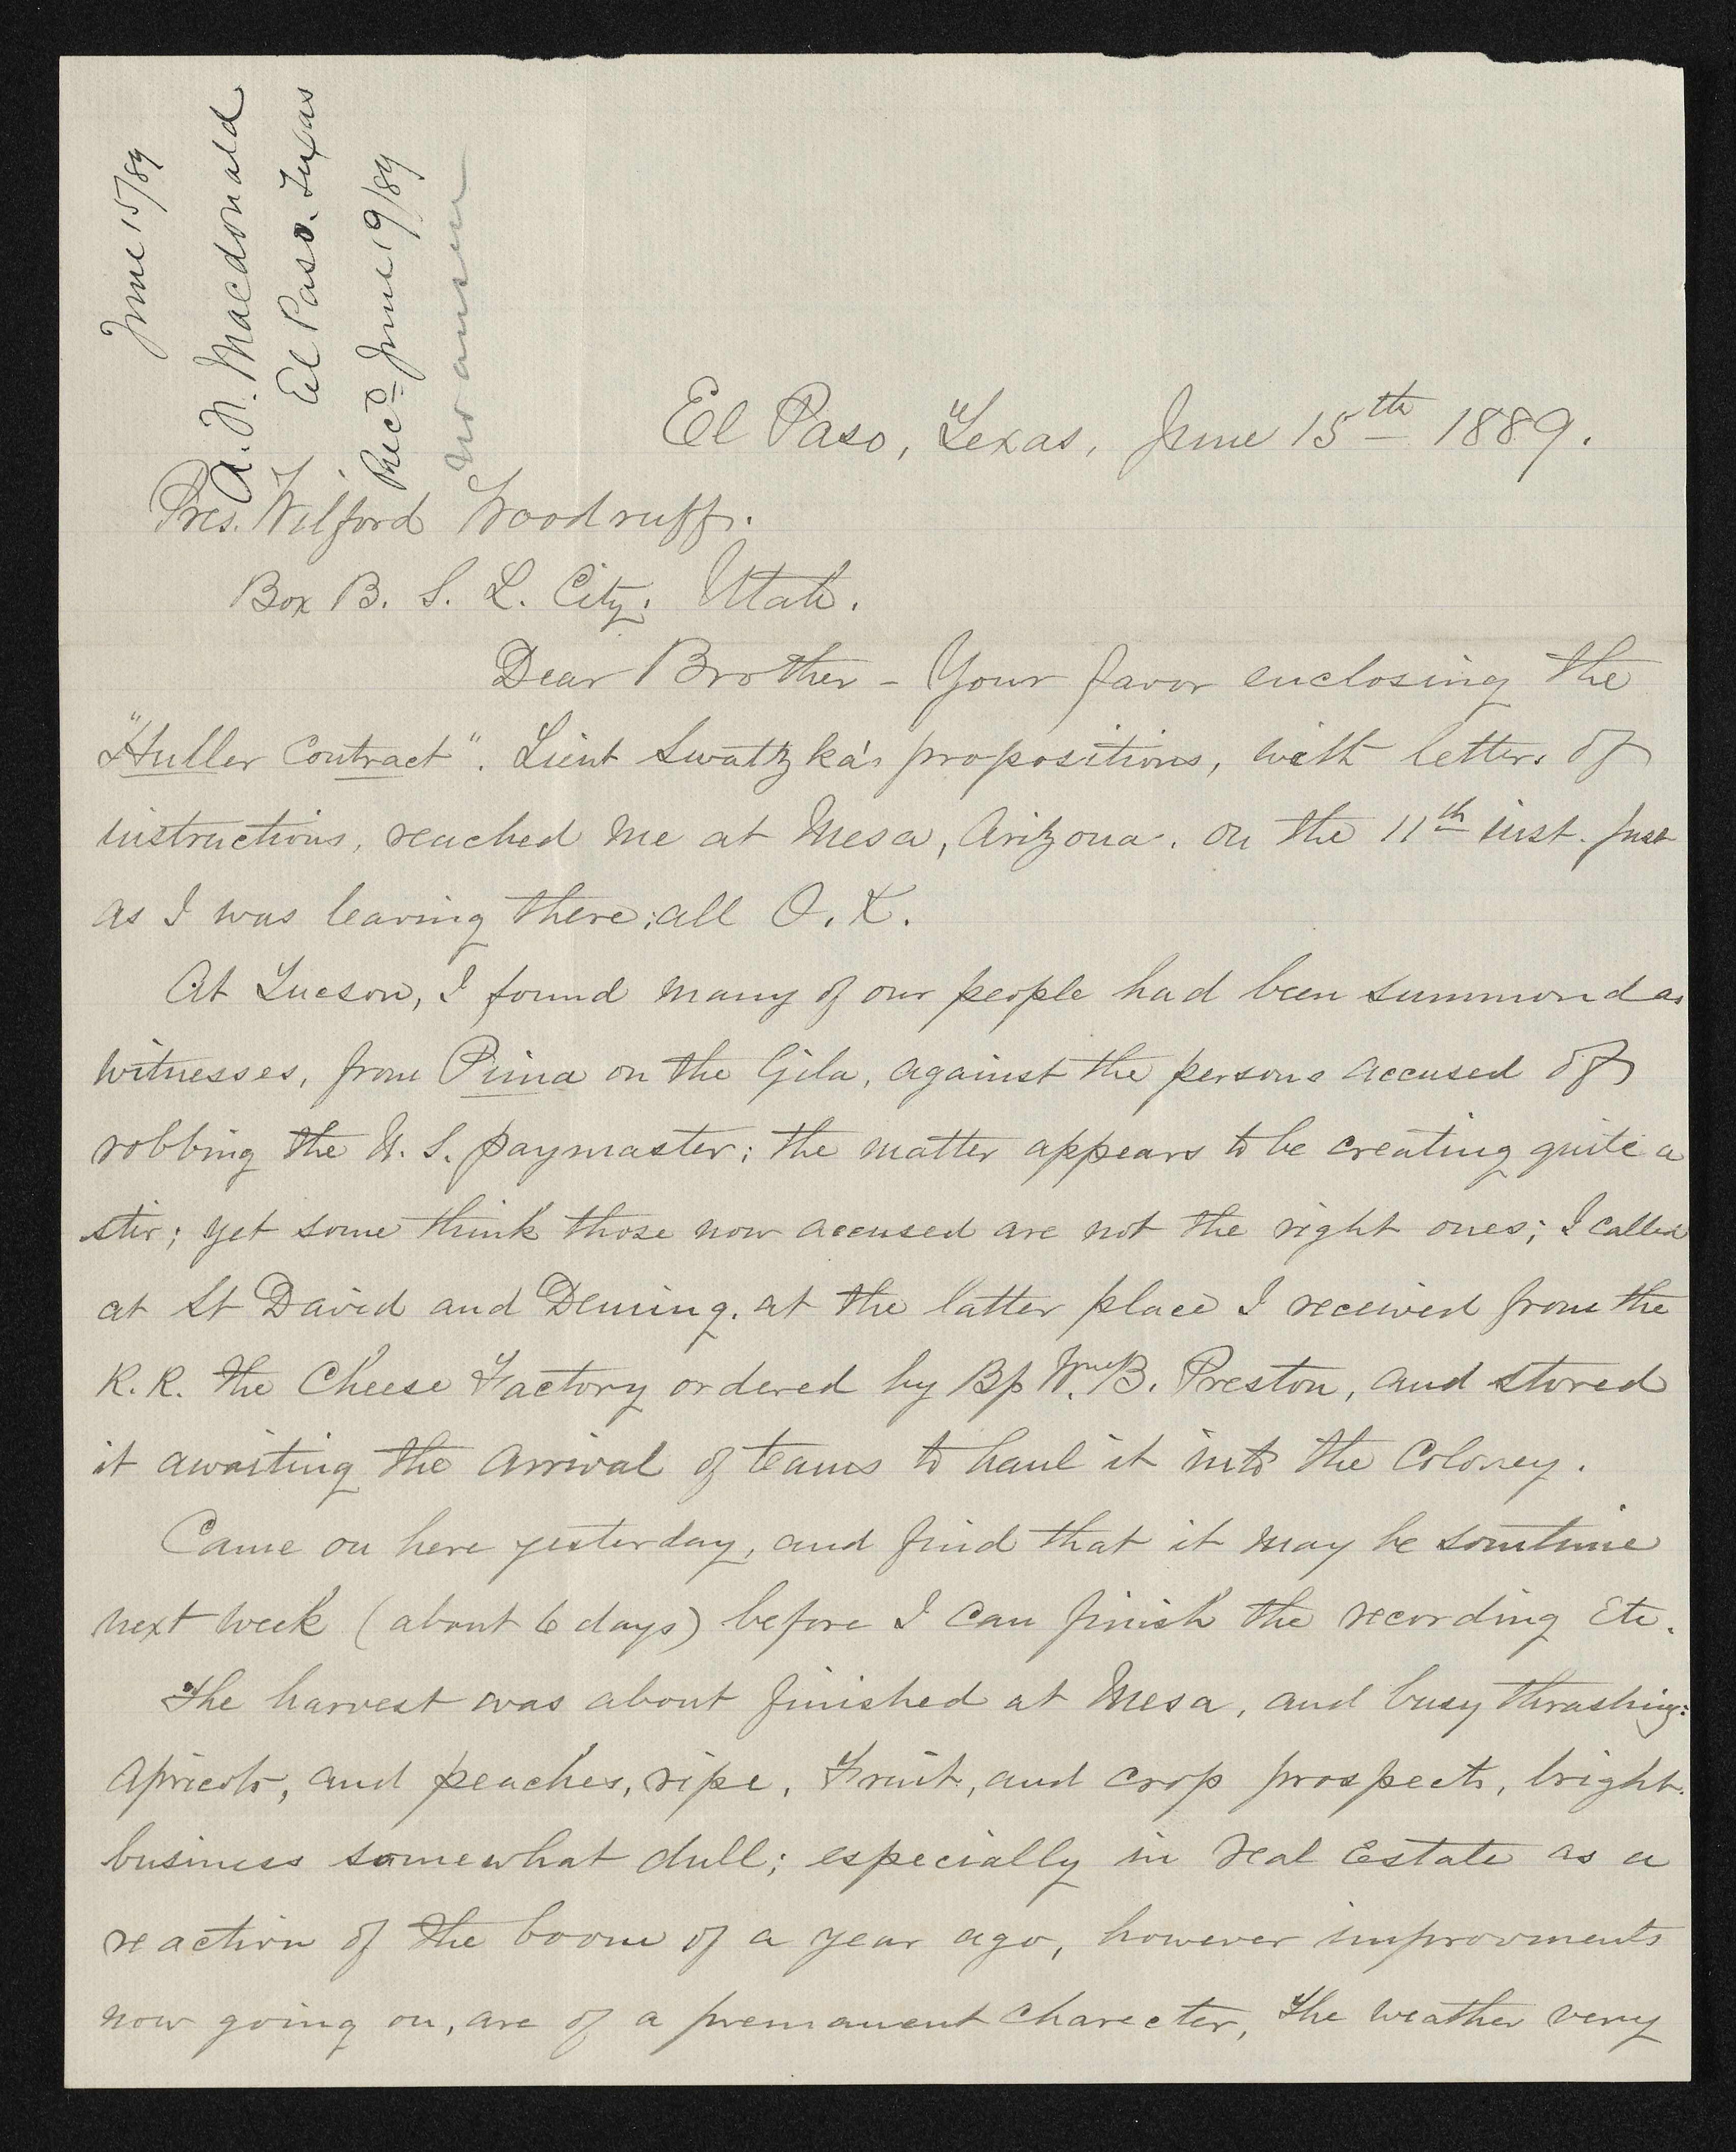 June 15/89
A. F. Macdonald
El Paso. Texas
Recd June 19/89
No answer
El Paso, Texas, June 15th 1889.
Pres. Wilford Woodruff.
Box B. S. L. City. Utah.
Dear Brother - Your favor enclosing the
"Huller Contract". Lieut Swatzka's propositions, with letters of
instructions, reached me at Mesa, Arizona. on the 11th inst. just
as I was leaving there; all O. K.
At Tucson, I found many of our people had been summond as
witnesses, from Pima on the Gila, against the persons accused of
robbing the U. S. paymaster; the matter appears to be creating quite a
stir; yet some think those now accused are not the right ones; I called
at St David and Deming. at the latter place I received from the
R. R. the Cheese Factory ordered by Bp Wm B. Preston, and stored
it awaiting the arrival of teams to haul it into the Coloney.
Came on here yesterday, and find that it may be somtime
next week (about 6 days) before I can finish the recording Etc.
The harvest was about finished at Mesa, and busy thrashing:
Apricots, and peaches, ripe, Fruit, and crop prospects, bright.
business somewhat dull; especially in real Estate as a
reaction of the boom of a year ago, however improvments
now going on, are of a premanent charecter, The weather very